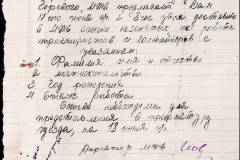 Горского, МТФ предлагает Вам
17 сего июня к 8 час. утра доставить
в МТФ списки незанятых на работе
трактористов и комбайнеров с
указанием:
1. Фамилия имя и отчество
2. местожительство
3. Год рождения
4. Стаж работы
Списки необходимы для
предоставления в прокуратуру
на 18 июня
Директор МТФ